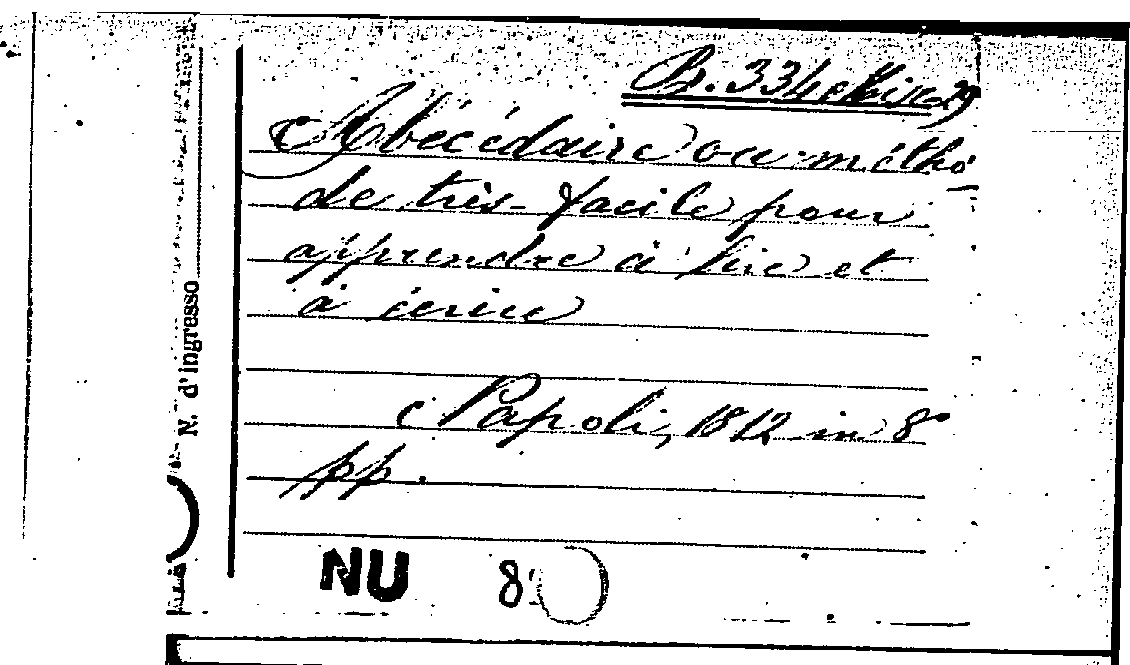 B. 334 Misc 29
Abécédaire ou métho
de très facile pour
apprendre à lire et
à écrire
Napoli, 1812 in 8°
pp.
N. d'ingresso
NU 8